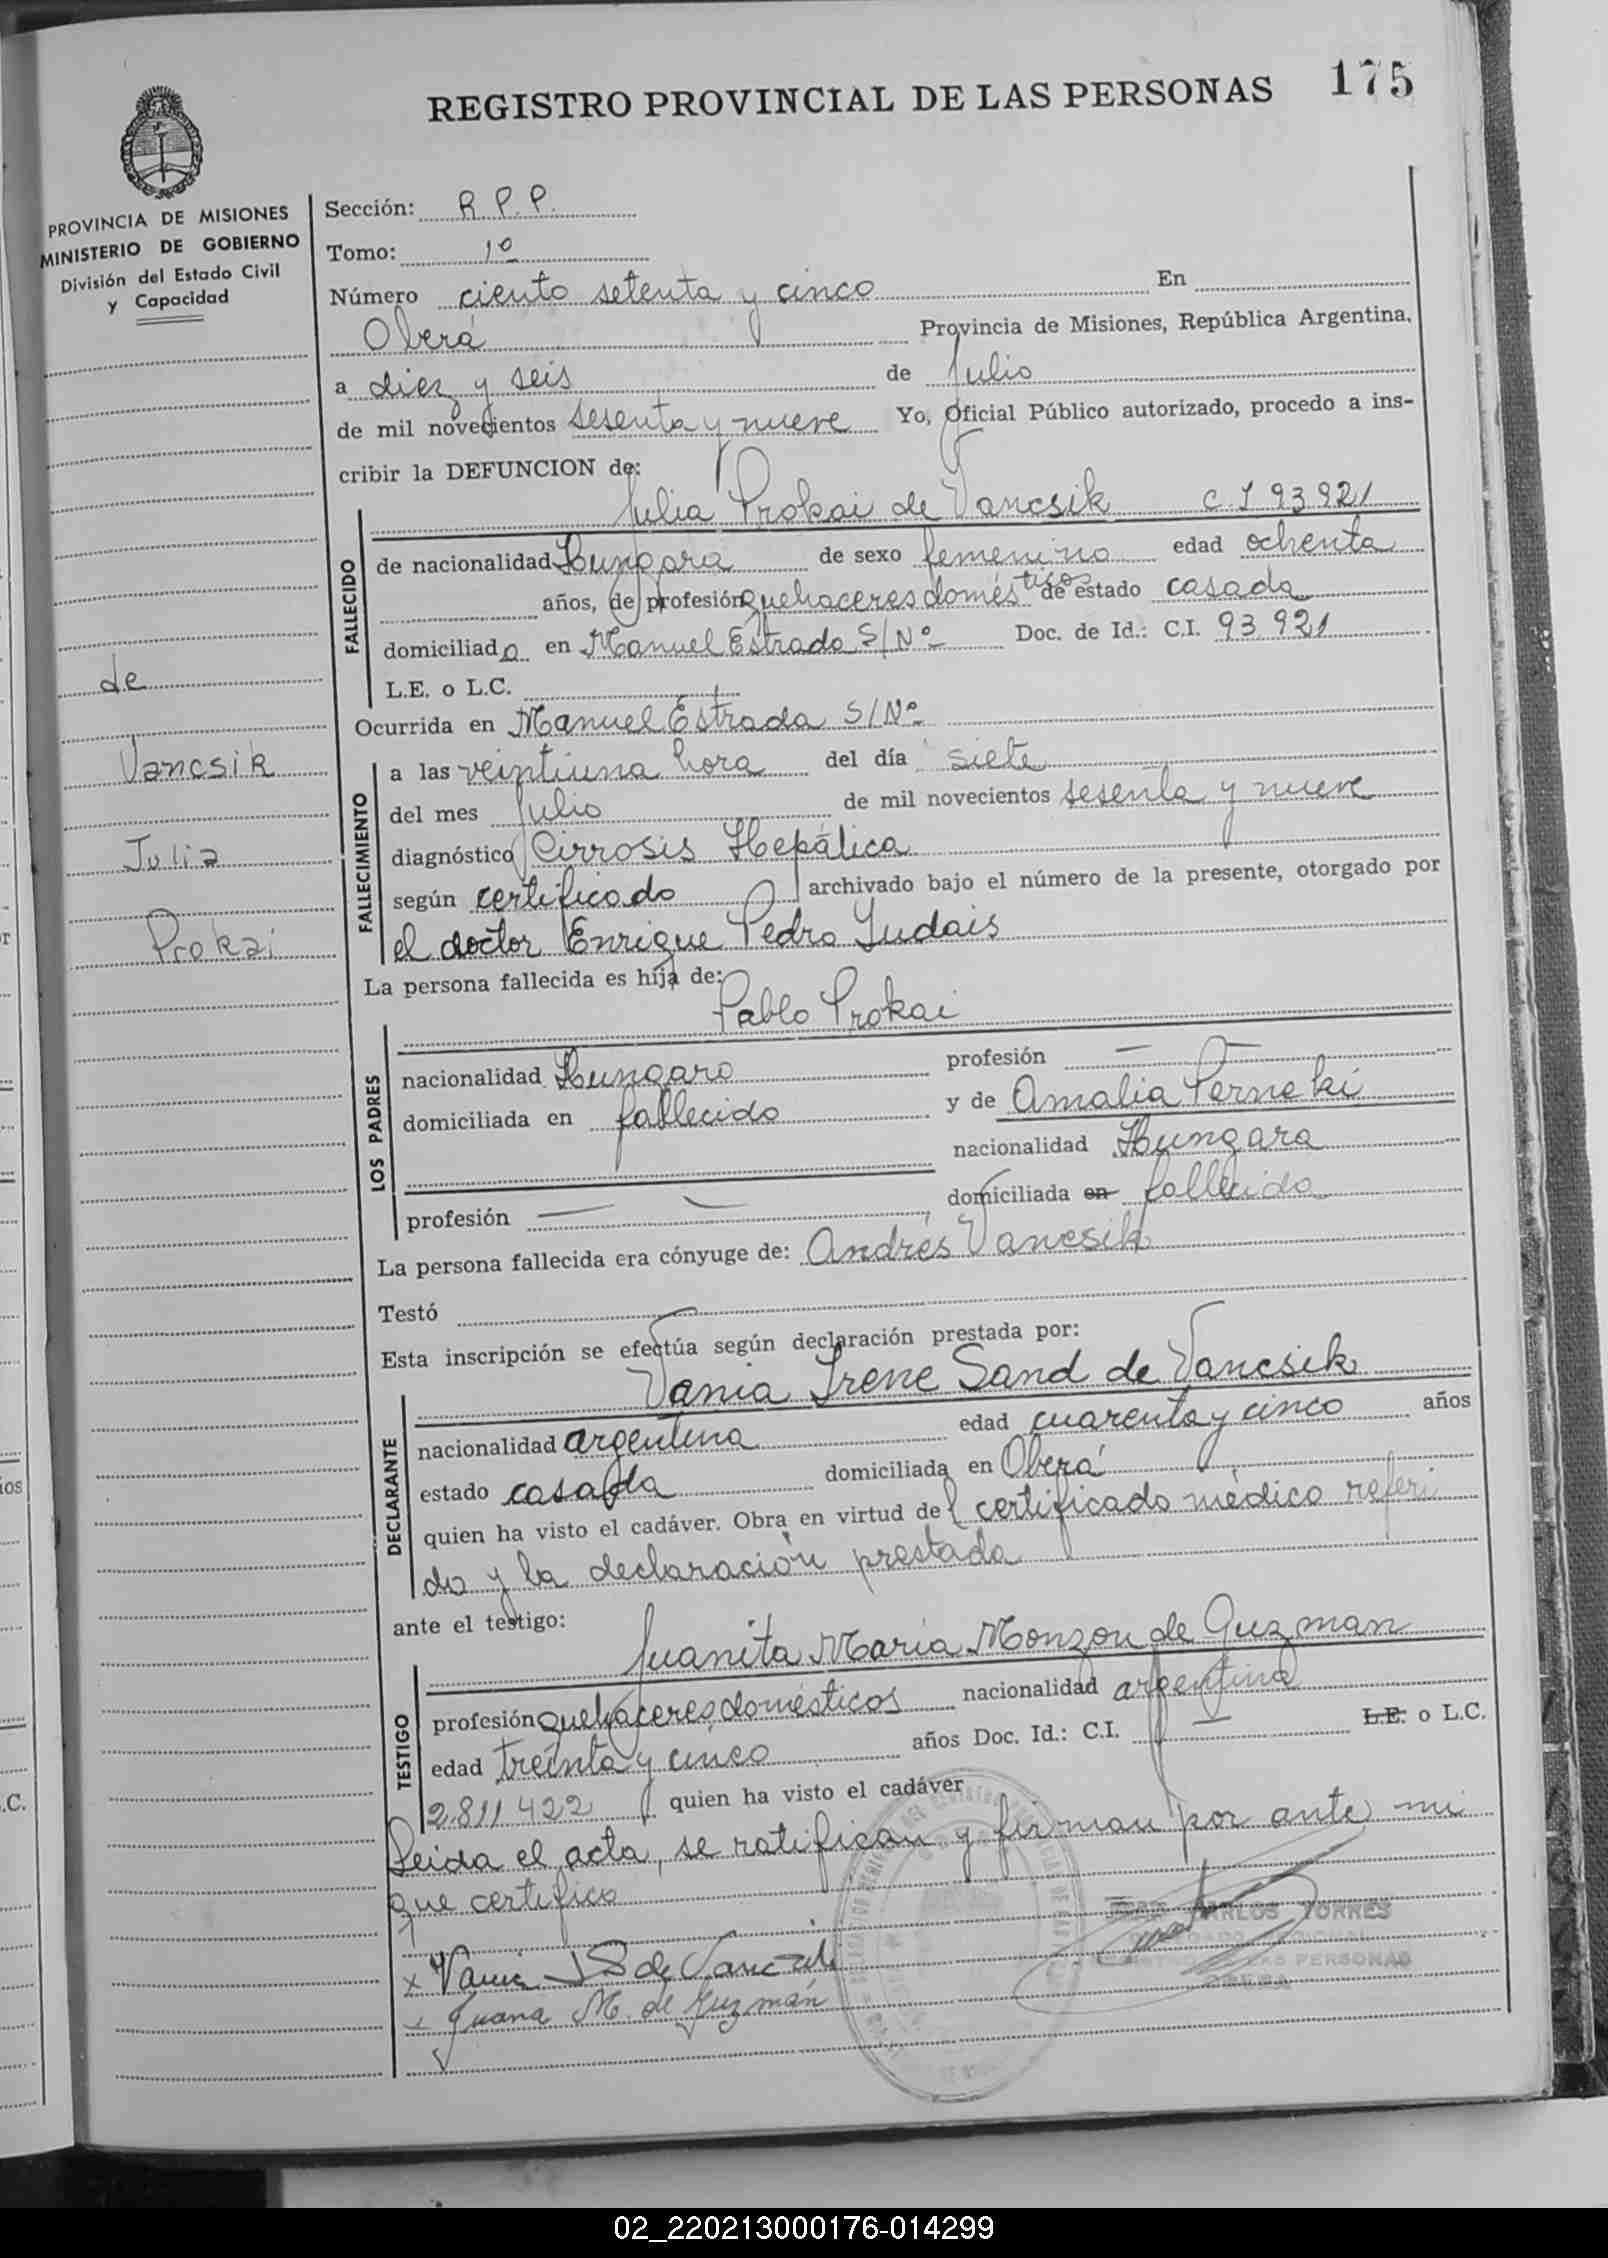 REGISTRO PROVINCIAL DE LAS PERSONAS 175
PROVINCIA DE MISIONES
MINISTERIO DE GOBIERNO
División del Estado Civil
y Capacidad
de
Vancsik
Julia
Prokai
Sección: R.P.P.
Tomo: 1º
Número ciento setenta y cinco En
Oberá Provincia de Misiones, República Argentina,
a diez y seis de Julio
de mil novecientos sesenta y nueve Yo, Oficial Público autorizado, procedo a ins-
cribir la DEFUNCION de:
Julia Prokai de Vancsik C I 93921
FALLECIDO
de nacionalidad Hungara de sexo femenino edad ochenta
años, de profesión quehaceres domésticos de estado casada
domiciliada en Manuel Estrada S/Nº Doc. de Id.: C.I. 93 921
L.E. o L.C.
Ocurrida en Manuel Estrada S/Nº
FALLECIMIENTO
a las veintiuna hora del día siete
del mes Julio de mil novecientos sesenta y nueve
diagnóstico Cirrosis Hepática
según certificado archivado bajo el número de la presente, otorgado por
el doctor Enrique Pedro Judais
La persona fallecida es hija de:
Pablo Prokai
LOS PADRES
nacionalidad Hungaro profesión — —
domiciliada en fallecido y de Amalia Perneki
nacionalidad Hungara
profesión — — domiciliada en fallecida
La persona fallecida era cónyuge de: Andrés Vancsik
Testó
Esta inscripción se efectúa según declaración prestada por:
Vania Irene Sand de Vancsik
DECLARANTE
nacionalidad argentina edad cuarenta y cinco años
estado casada domiciliada en Oberá
quien ha visto el cadáver. Obra en virtud del certificado médico referi
do y la declaración prestada
ante el testigo:
Juanita María Monzon de Guzman
TESTIGO
profesión quehaceres domésticos nacionalidad argentina
edad treinta y cinco años Doc. Id.: C.I. — L.E. o L.C.
2.811 422 quien ha visto el cadáver
Leida el acta, se ratifican y firman por ante mi
que certifico
CARLOS TORRES
PERSONAS
OBERA
x Vania I S de Vancsik
x Juana M. de Guzmán
02_220213000176-014299